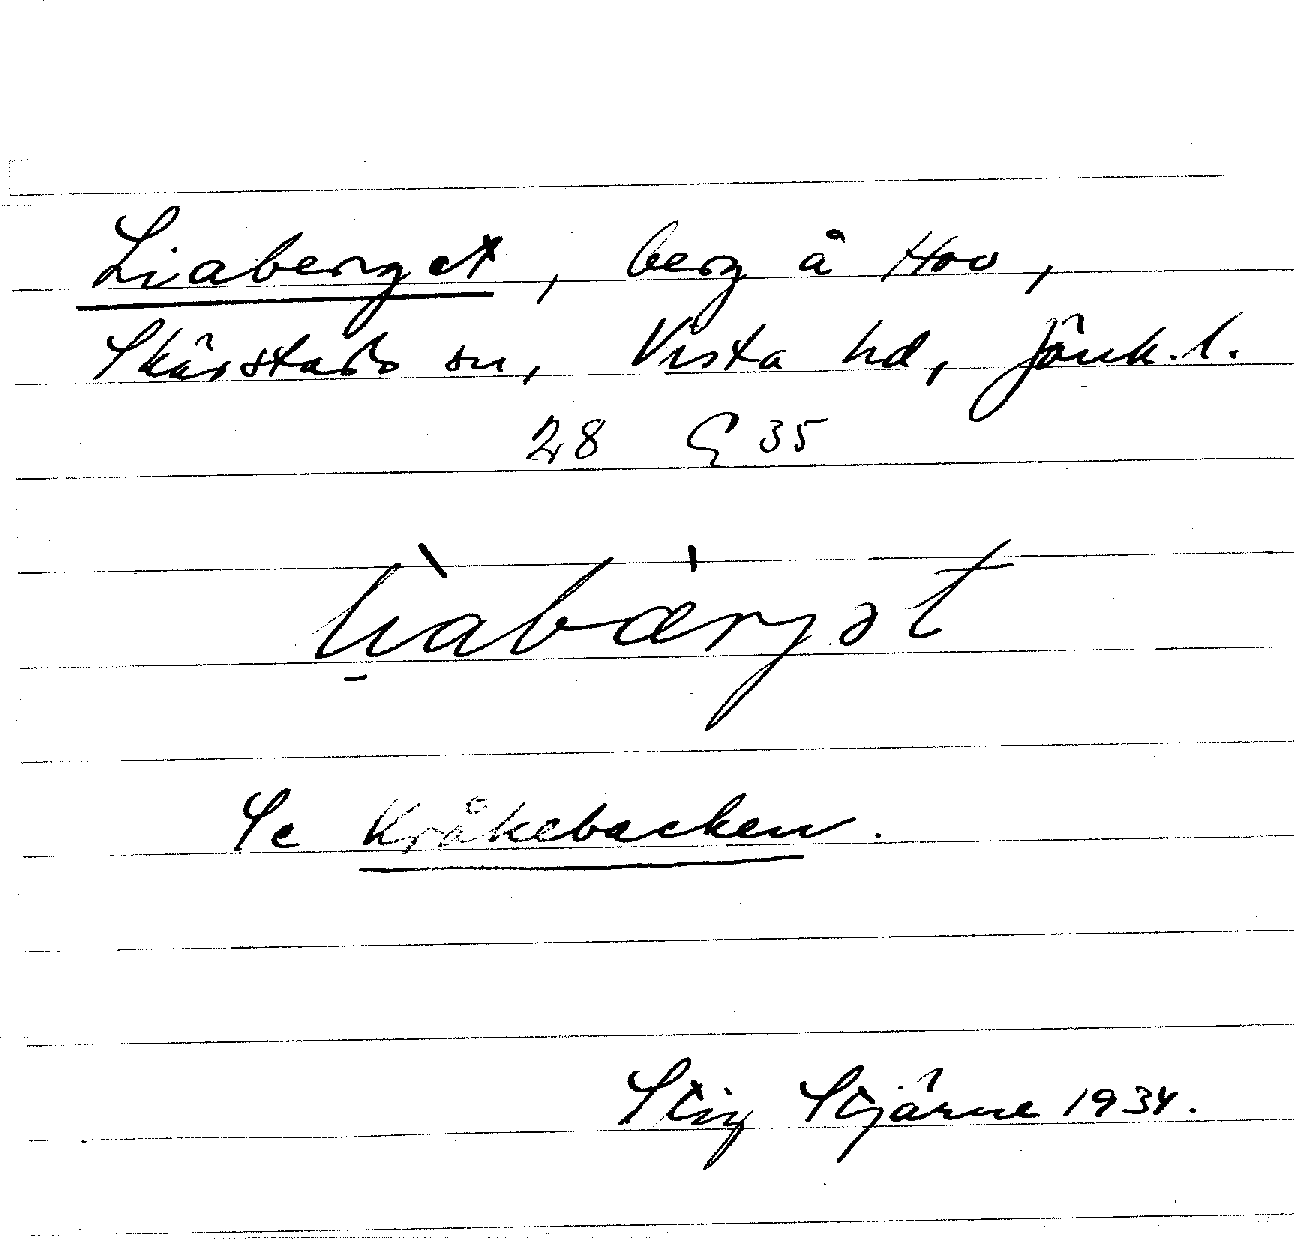 Liaberget, berg å Hov,
Skärstads sn, Vista hd, Jönk. l.
28 G 35
lì̱abæ̍rjət
Se Kråkebacken.
Stig Stjärne 1934.